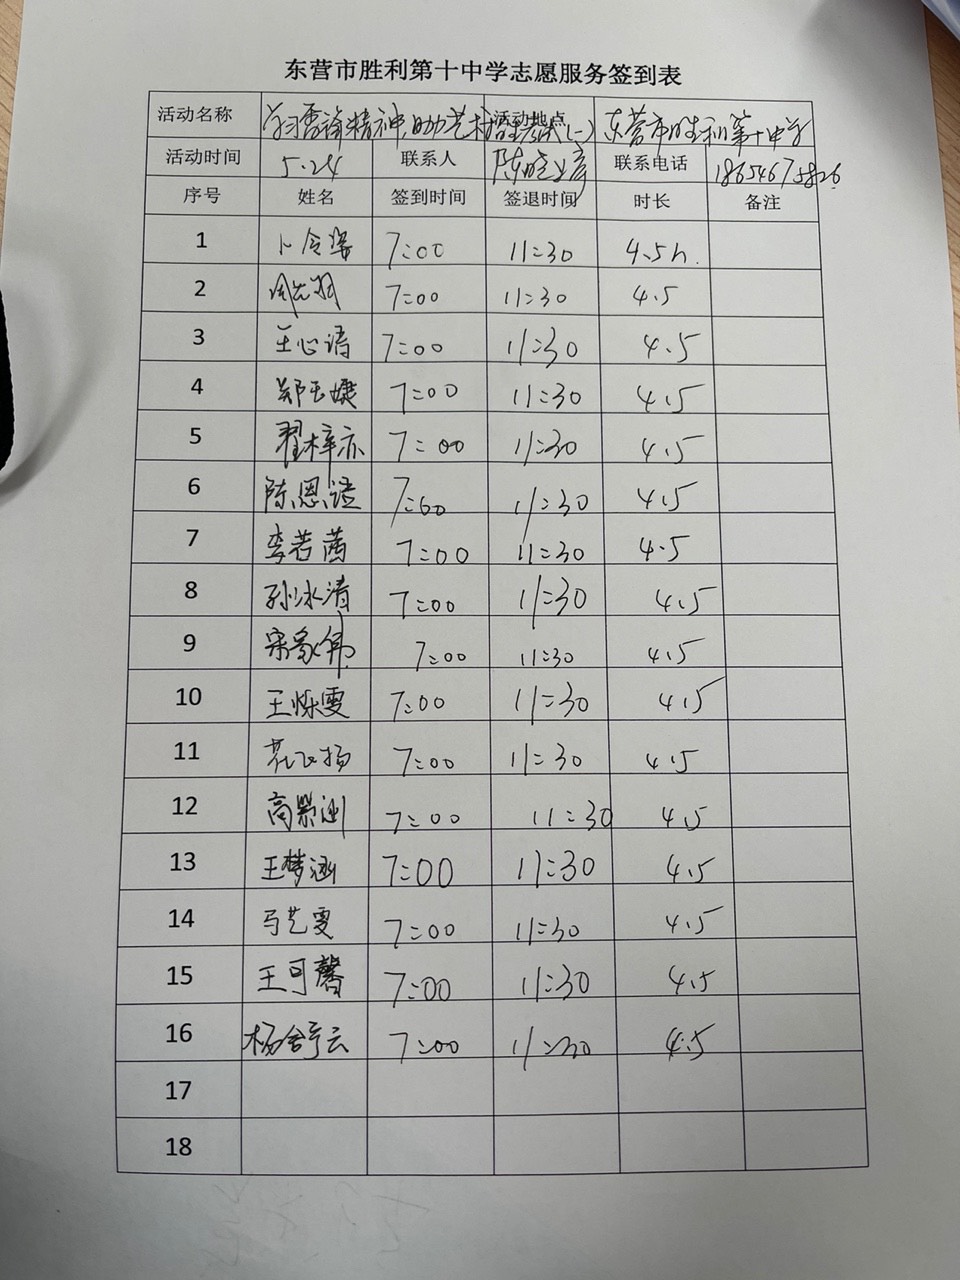 东营市胜利第十中学志愿服务签到表
活动名称 学习雷锋精神,助艺术 活动地点 (一) 东营市胜利第十中学
活动时间 5.24 联系人 陈晓彦 联系电话 18654675826
序号 姓名 签到时间 签退时间 时长 备注
1 卜令 7:00 11:30 4.5h.
2 7:00 11:30 4.5
3 王心语 7:00 11:30 4.5
4 郑玉婕 7:00 11:30 4.5
5 翟梓亦 7:00 11:30 4.5
6 陈恩语 7:00 11:30 4.5
7 李若茜 7:00 11:30 4.5
8 孙冰清 7:00 11:30 4.5
9 宋家伟 7:00 11:30 4.5
10 王烁雯 7:00 11:30 4.5
11 花飞扬 7:00 11:30 4.5
12 高 7:00 11:30 4.5
13 王梦涵 7:00 11:30 4.5
14 马艺雯 7:00 11:30 4.5
15 王可馨 7:00 11:30 4.5
16 杨舒云 7:00 11:30 4.5
17
18